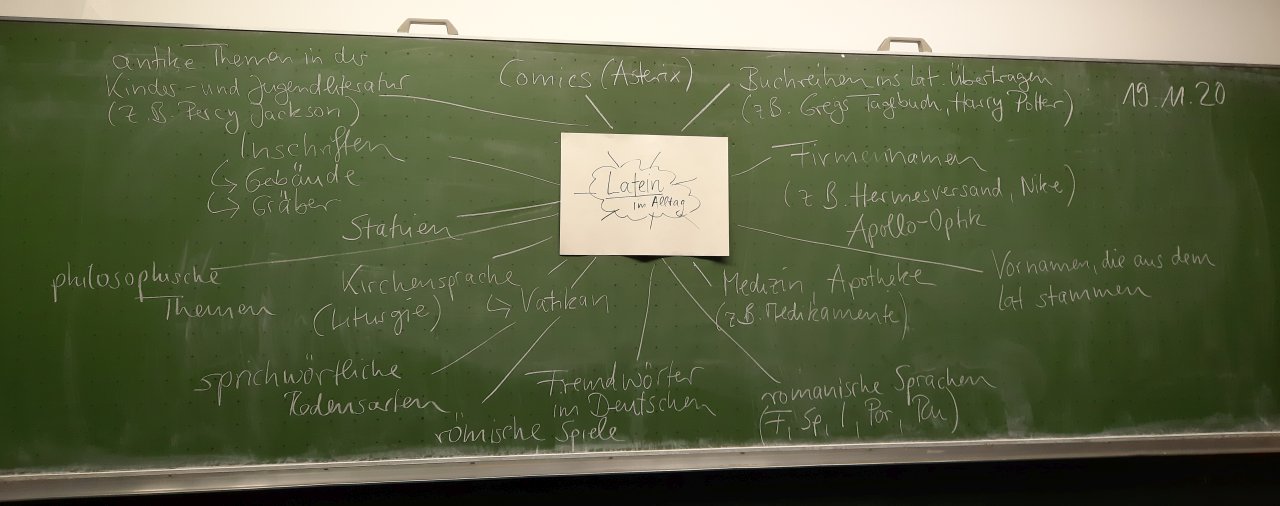 antike Themen in der
Kinder- und Jugendliteratur
(z.B. Percy Jackson)
Comics (Asterix)
Buchreihen ins Lat übertragen
(z.B. Gregs Tagebuch, Harry Potter)
19.11.20
Inschriften
↳ Gebäude
↳ Gräber
Latein
im Alltag
Firmennamen
(z.B. Hermesversand, Nike)
Apollo-Optik
Statuen
philosophische
Themen
Kirchensprache
(Liturgie)
↳ Vatikan
Medizin, Apotheke
(z.B. Medikamente)
Vornamen, die aus dem
Lat stammen
sprichwörtliche
Redensarten
römische Spiele
Fremdwörter
im Deutschen
romanische Sprachen
(F, Sp, I, Por, Ru)